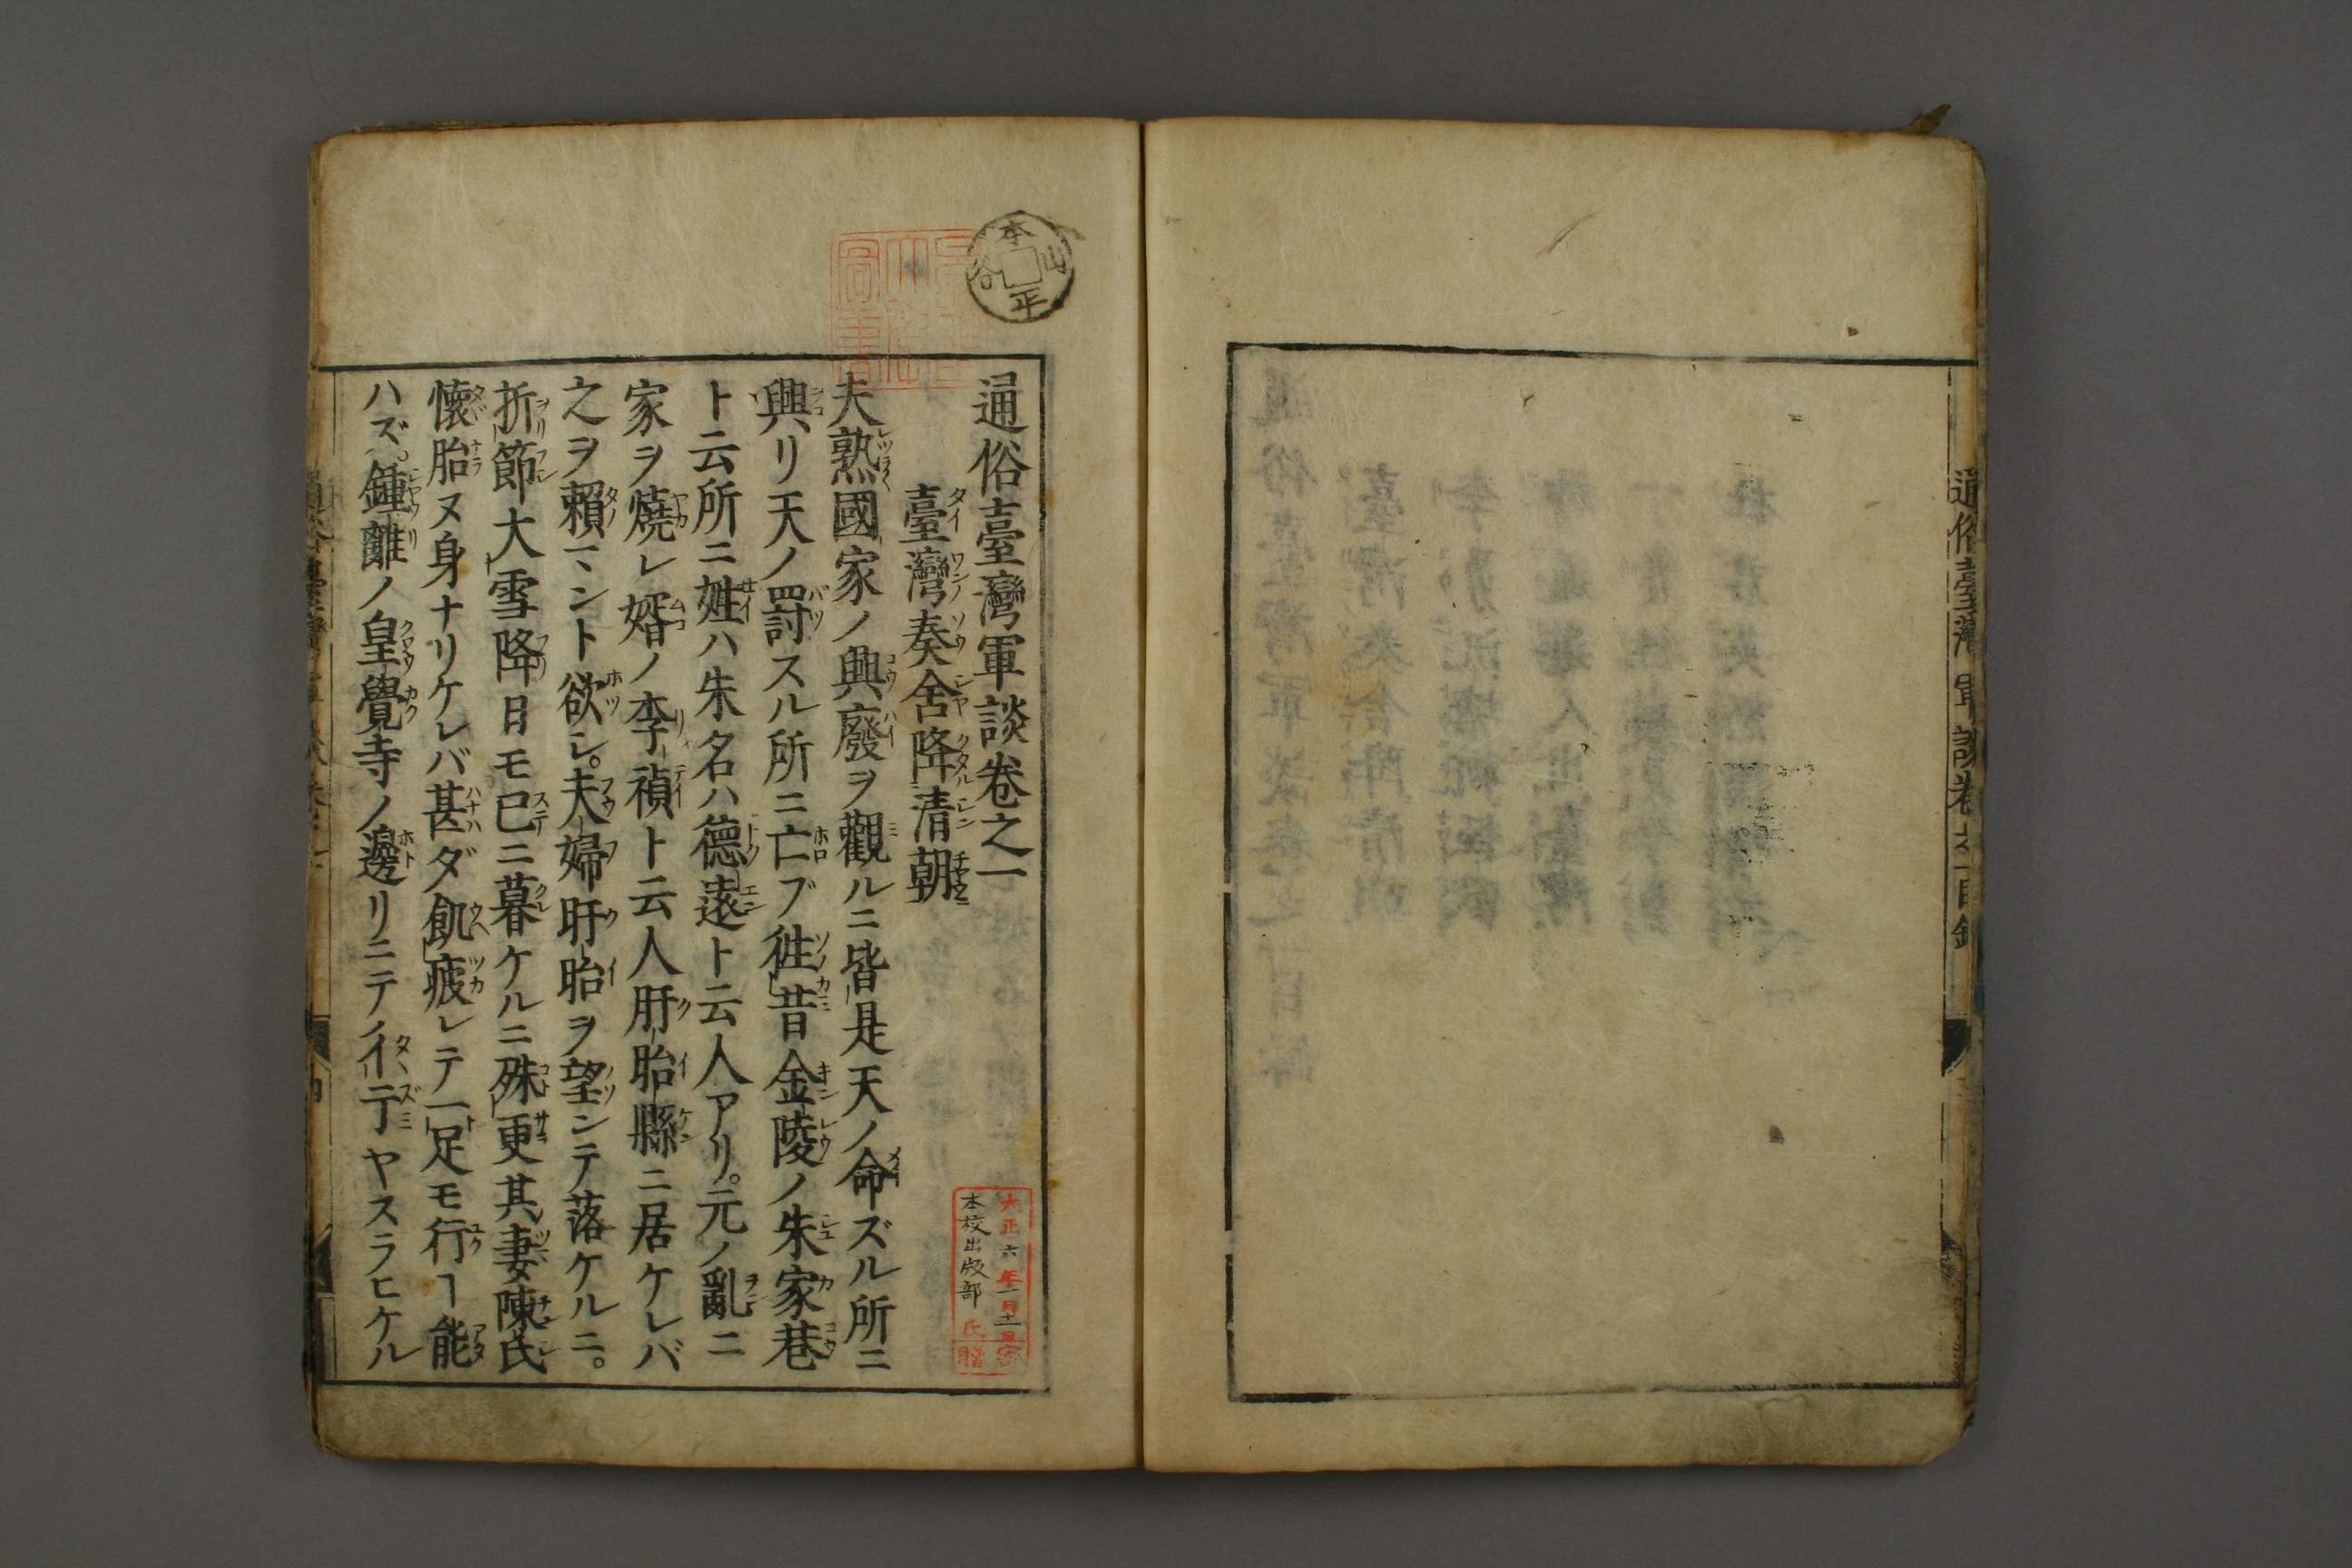 通俗臺灣軍談卷之一目錄
通俗臺灣軍談卷之一
臺灣奏舍降清朝
夫熟國家ノ興廢ヲ觀ルニ皆是天ノ命ズル所ニ
興リ天ノ罸スル所ニ亡ブ徃昔金陵ノ朱家巷
ト云所ニ姓ハ朱名ハ德遠ト云人アリ。元ノ亂ニ
家ヲ燒レ婿ノ李禎ト云人肝胎縣ニ居ケレバ
之ヲ賴マント欲シ。夫婦肝胎ヲ望ンテ落ケルニ。
折節大雪降日モ已ニ暮ケルニ殊更其妻陳氏
懷胎ヌ身ナリケレバ甚ダ飢疲レテ一足モ行ヿ能
ハズ。鍾離ノ皇覺寺ノ邊リニテ彳亍ヤスラヒケル
本山正谷
大正六年一月十一日寄贈
本校出版部氏